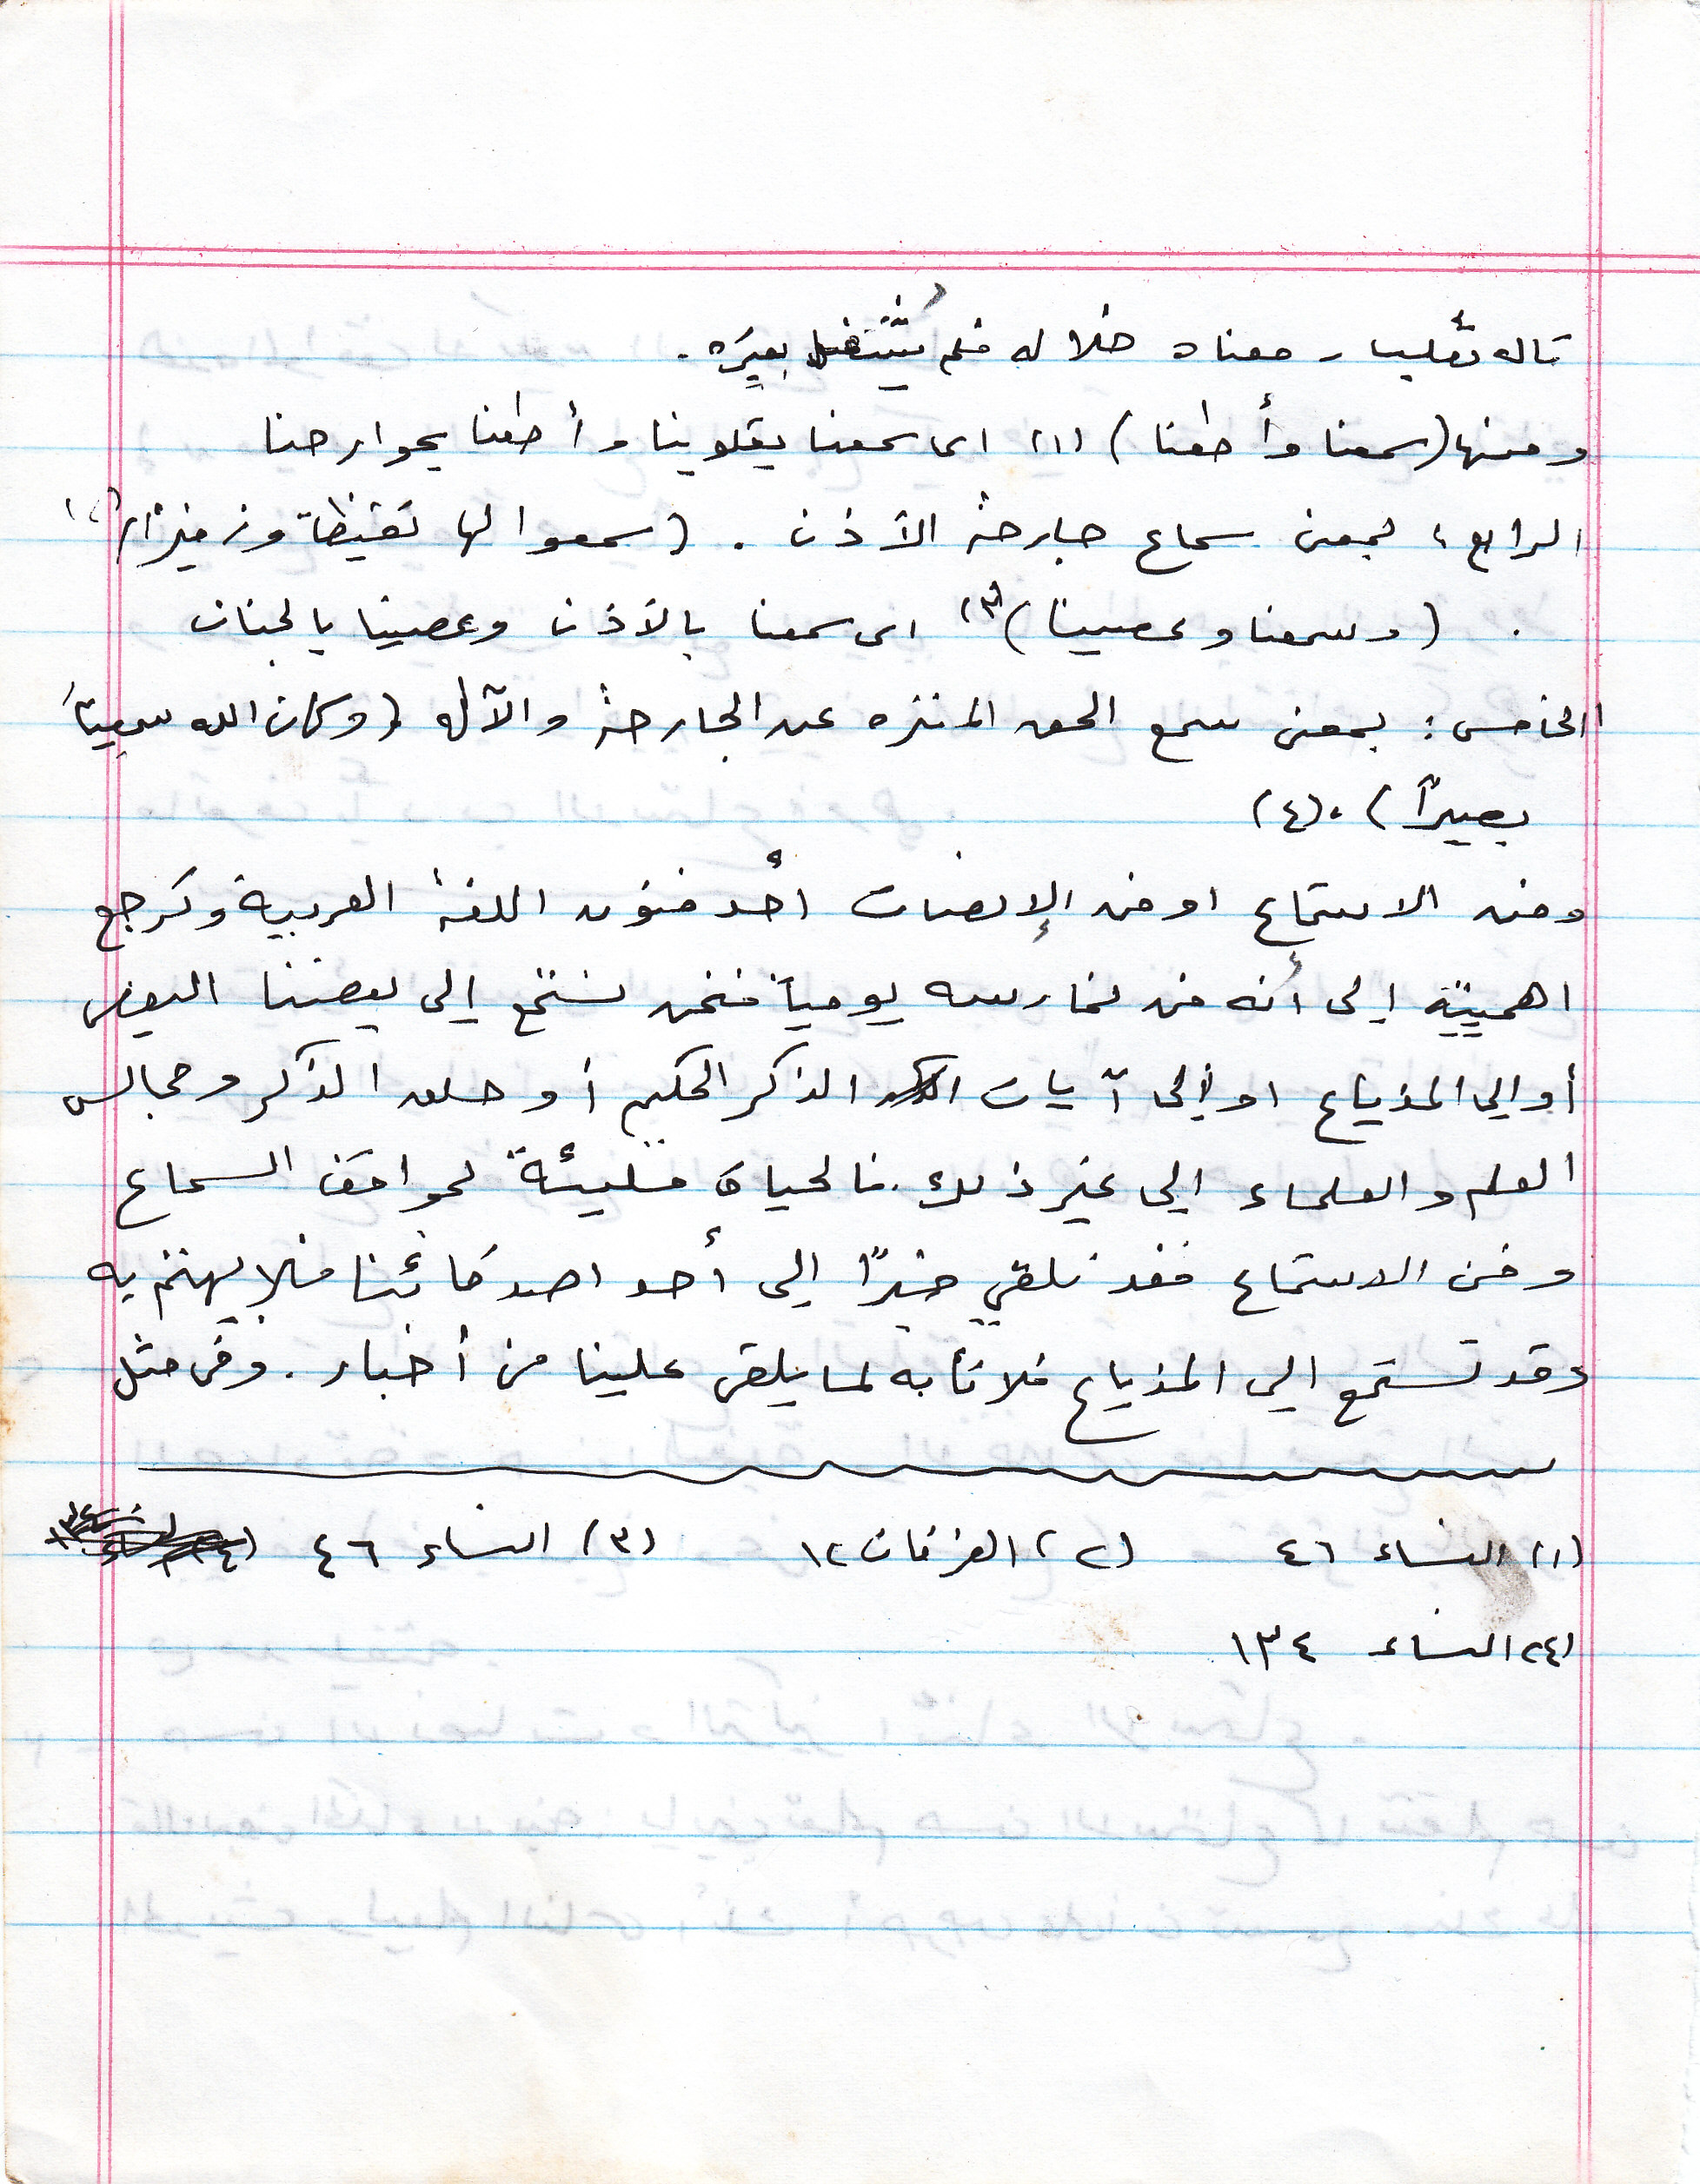 قاله ثعلب، معناه خلا له فلم يشتغل بغيره.
ومنها (سمعنا وأطعنا) (١) اى سمعنا بقلوبنا وأطعنا بجوارحنا
الرابع: بمعنى سماع جارحة الآذن. (سمعوا لها تغيظاً وزفيراً) (٢)
. (وسمعنا وعصينا) (٣) اى سمعنا بالآذن وعصينا بالجنان
الخامس: بمعنى سمع الحق المنزه عن الجارحة والآله (وكان الله سميعاً
بصيراً). (٤)
وفن الاستماع او فن الإنصات أحد فنون اللغة العربية وترجع
اهميته إلى أنه فن نمارسه يومياً فنحن نستمع إلى بعضنا البعض
أو الي المذياع او إلى آيات الذكر الحكيم أو حلق الذكر ومجالس
العلم والعلماء الي غير ذلك. فالحياة مليئة بمواقف السماع
وفن الاستماع فقد نلقي خبراً إلى أحد اصدقائنا فلا يهتم به
وقد نستمع الي المذياع فلا نأبه لما يلقى علينا من أخبار. وفى مثل
(١) النساء ٤٦ (٢) الفرقان ١٢ (٣) النساء ٤٦
(٤) النساء ١٣٤